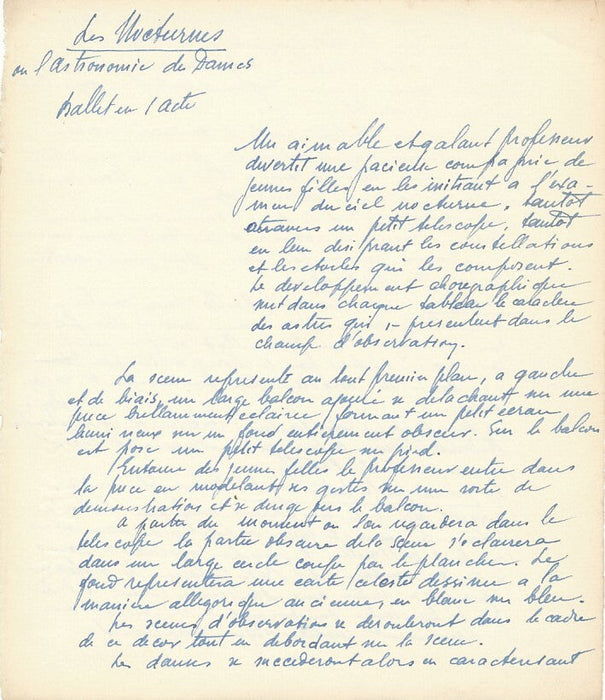 Les Nocturnes
ou l'astronomie des Dames
ballet en 1 acte
Un aimable et galant professeur
divertit une gracieuse compagnie de
jeunes filles en les initiant a l'exa-
men du ciel nocturne, tantôt
atravers un petit telescope, tantôt
en leur designant les constellations
et les etoiles qui les composent.
Le developpement choregraphique
suit dans chaque tableau le caractere
des astres qui se presentent dans le
champ d'observation.
La scene represente au tout premier plan, a gauche
et de biais, un large balcon ajouré se detachant sur une
piece brillamment eclairée formant un petit ecran
lumineux sur un fond entierement obscur. Sur le balcon
est posé un petit telescope sur pied.
Entouré des jeunes filles le professeur entre dans
la piece en modelant ses gestes sur une sorte de
demonstration et se dirige vers le balcon.
A partir du moment ou l'on regardera dans le
telescope la partie obscure de la scene s'eclairera
dans un large cercle coupé par le plancher. Le
fond representera une carte celeste dessinée a la
maniere allegorique ancienne, en blanc sur bleu.
Les scenes d'observation se derouleront dans le cadre
de ce decor tout en debordant sur la scene.
Les danses se succederont alors en caracterisant